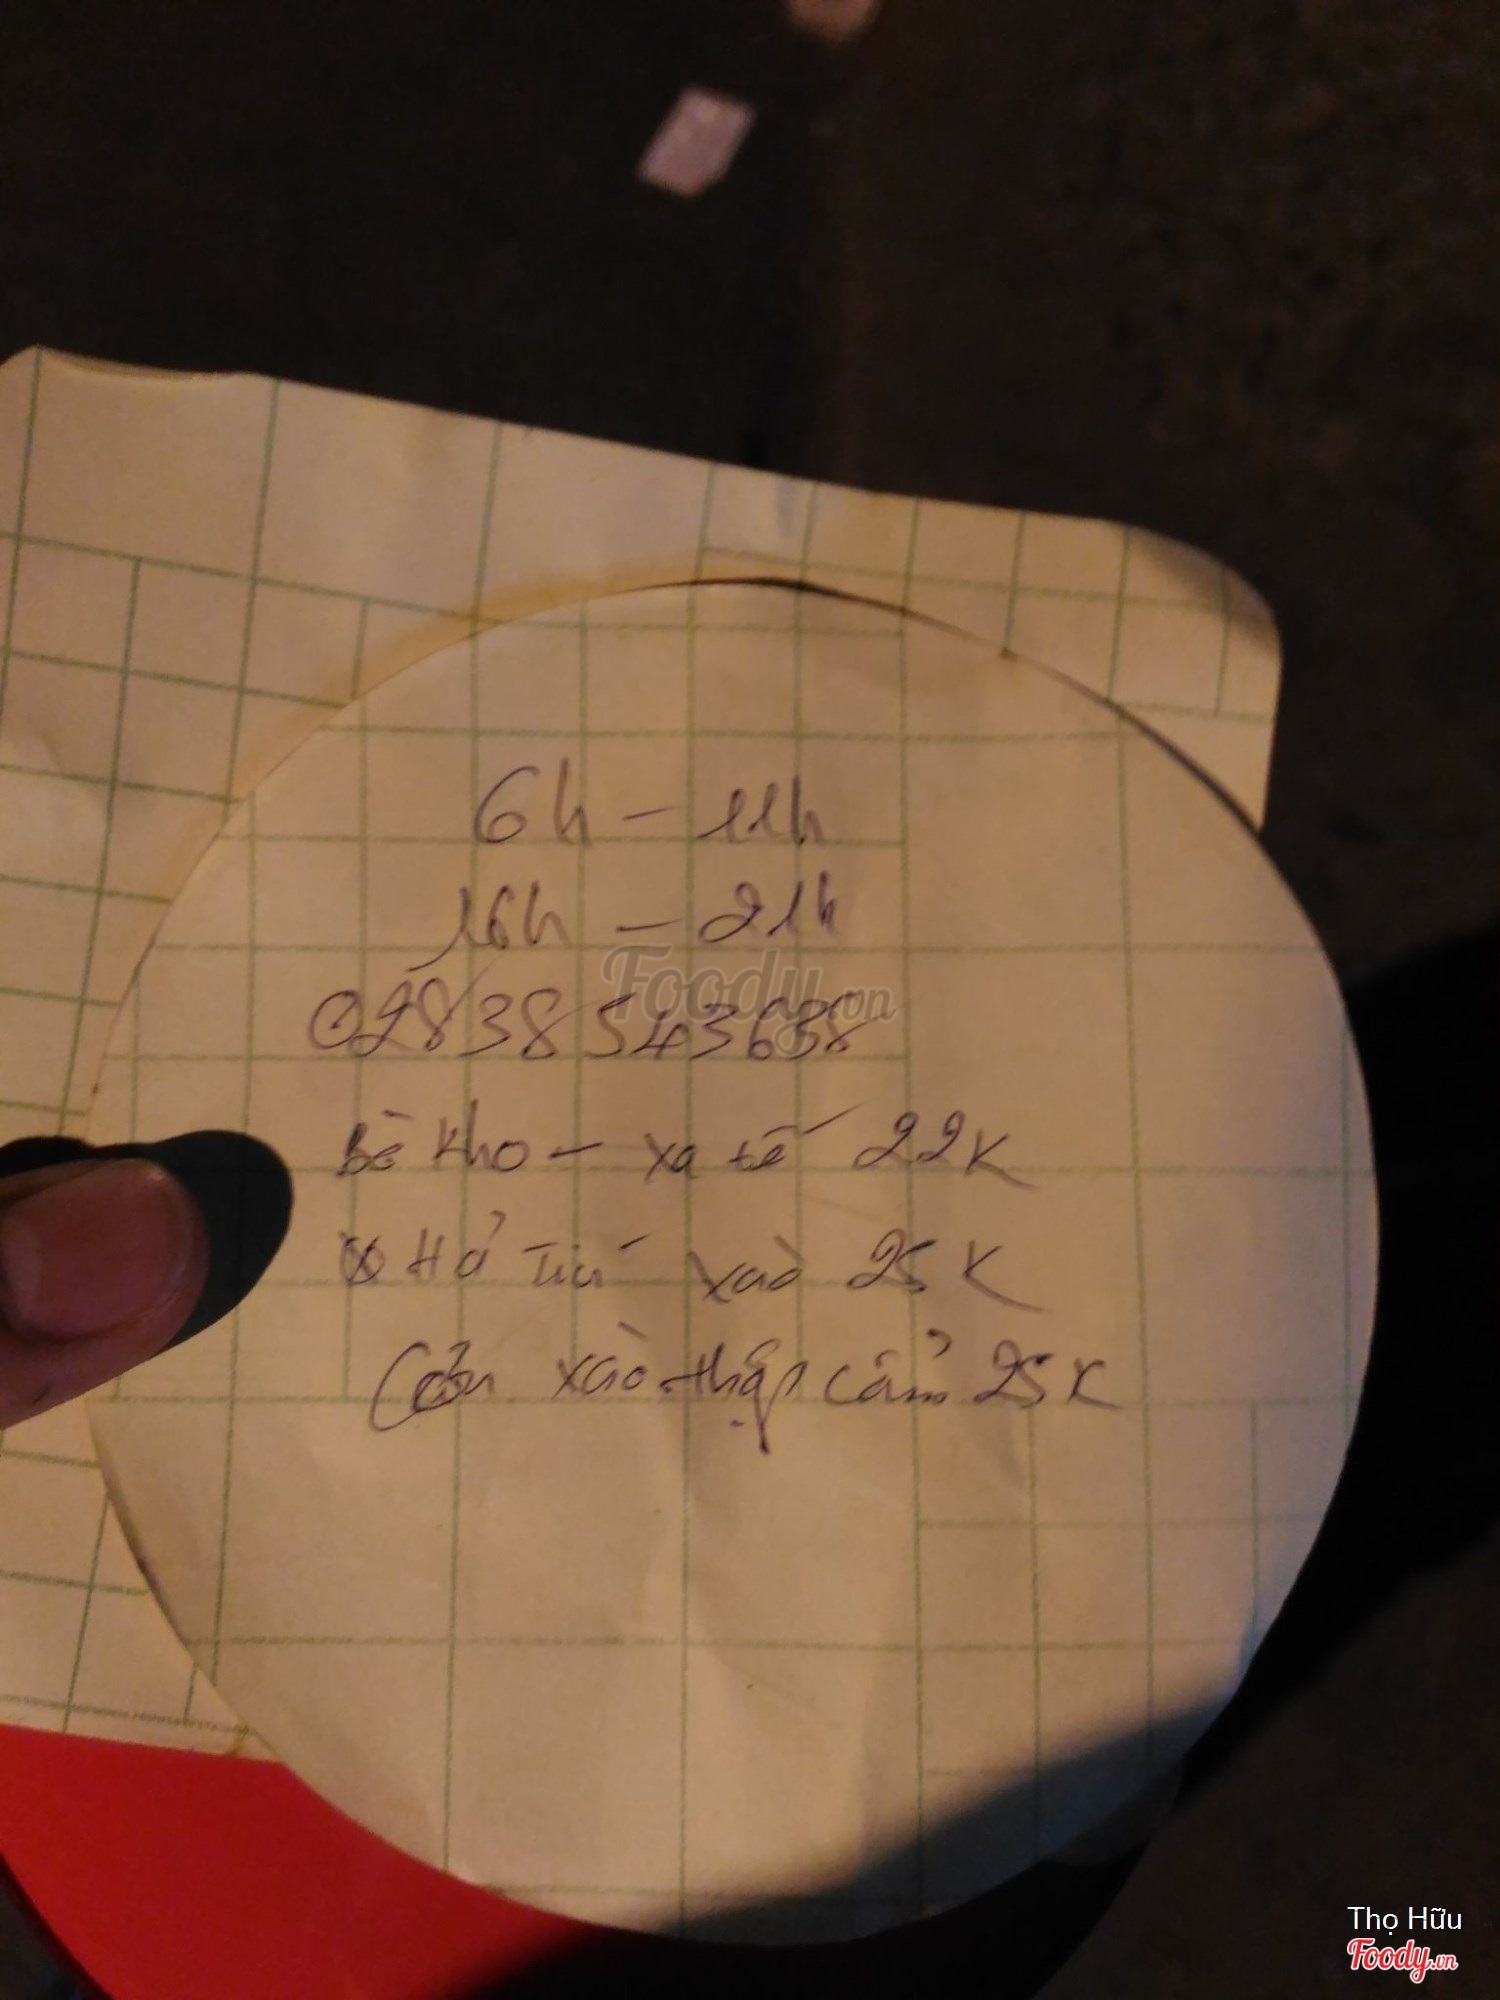 6h - 11h
16h - 21h
Foody.vn
02838543638
Bò kho - xa tế 22K
Hủ Tiếu xào 25K
Cơm xào thập cẩm 25K
Thọ Hữu
Foody.vn